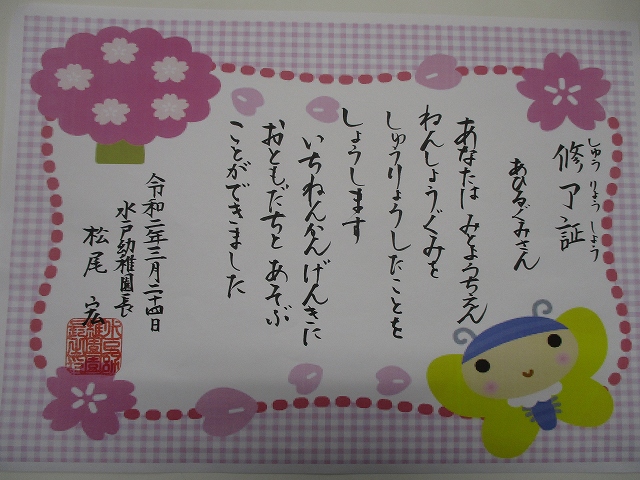 しゅうりょうしょう
修了証
あひるぐみさん
あなたは みとようちえん
ねんしょうぐみを
しゅうりょうしたことを
しょうします
いちねんかんげんきに
おともだちと あそぶ
ことができました
令和二年三月二十四日
水戸幼稚園長
松尾 宏